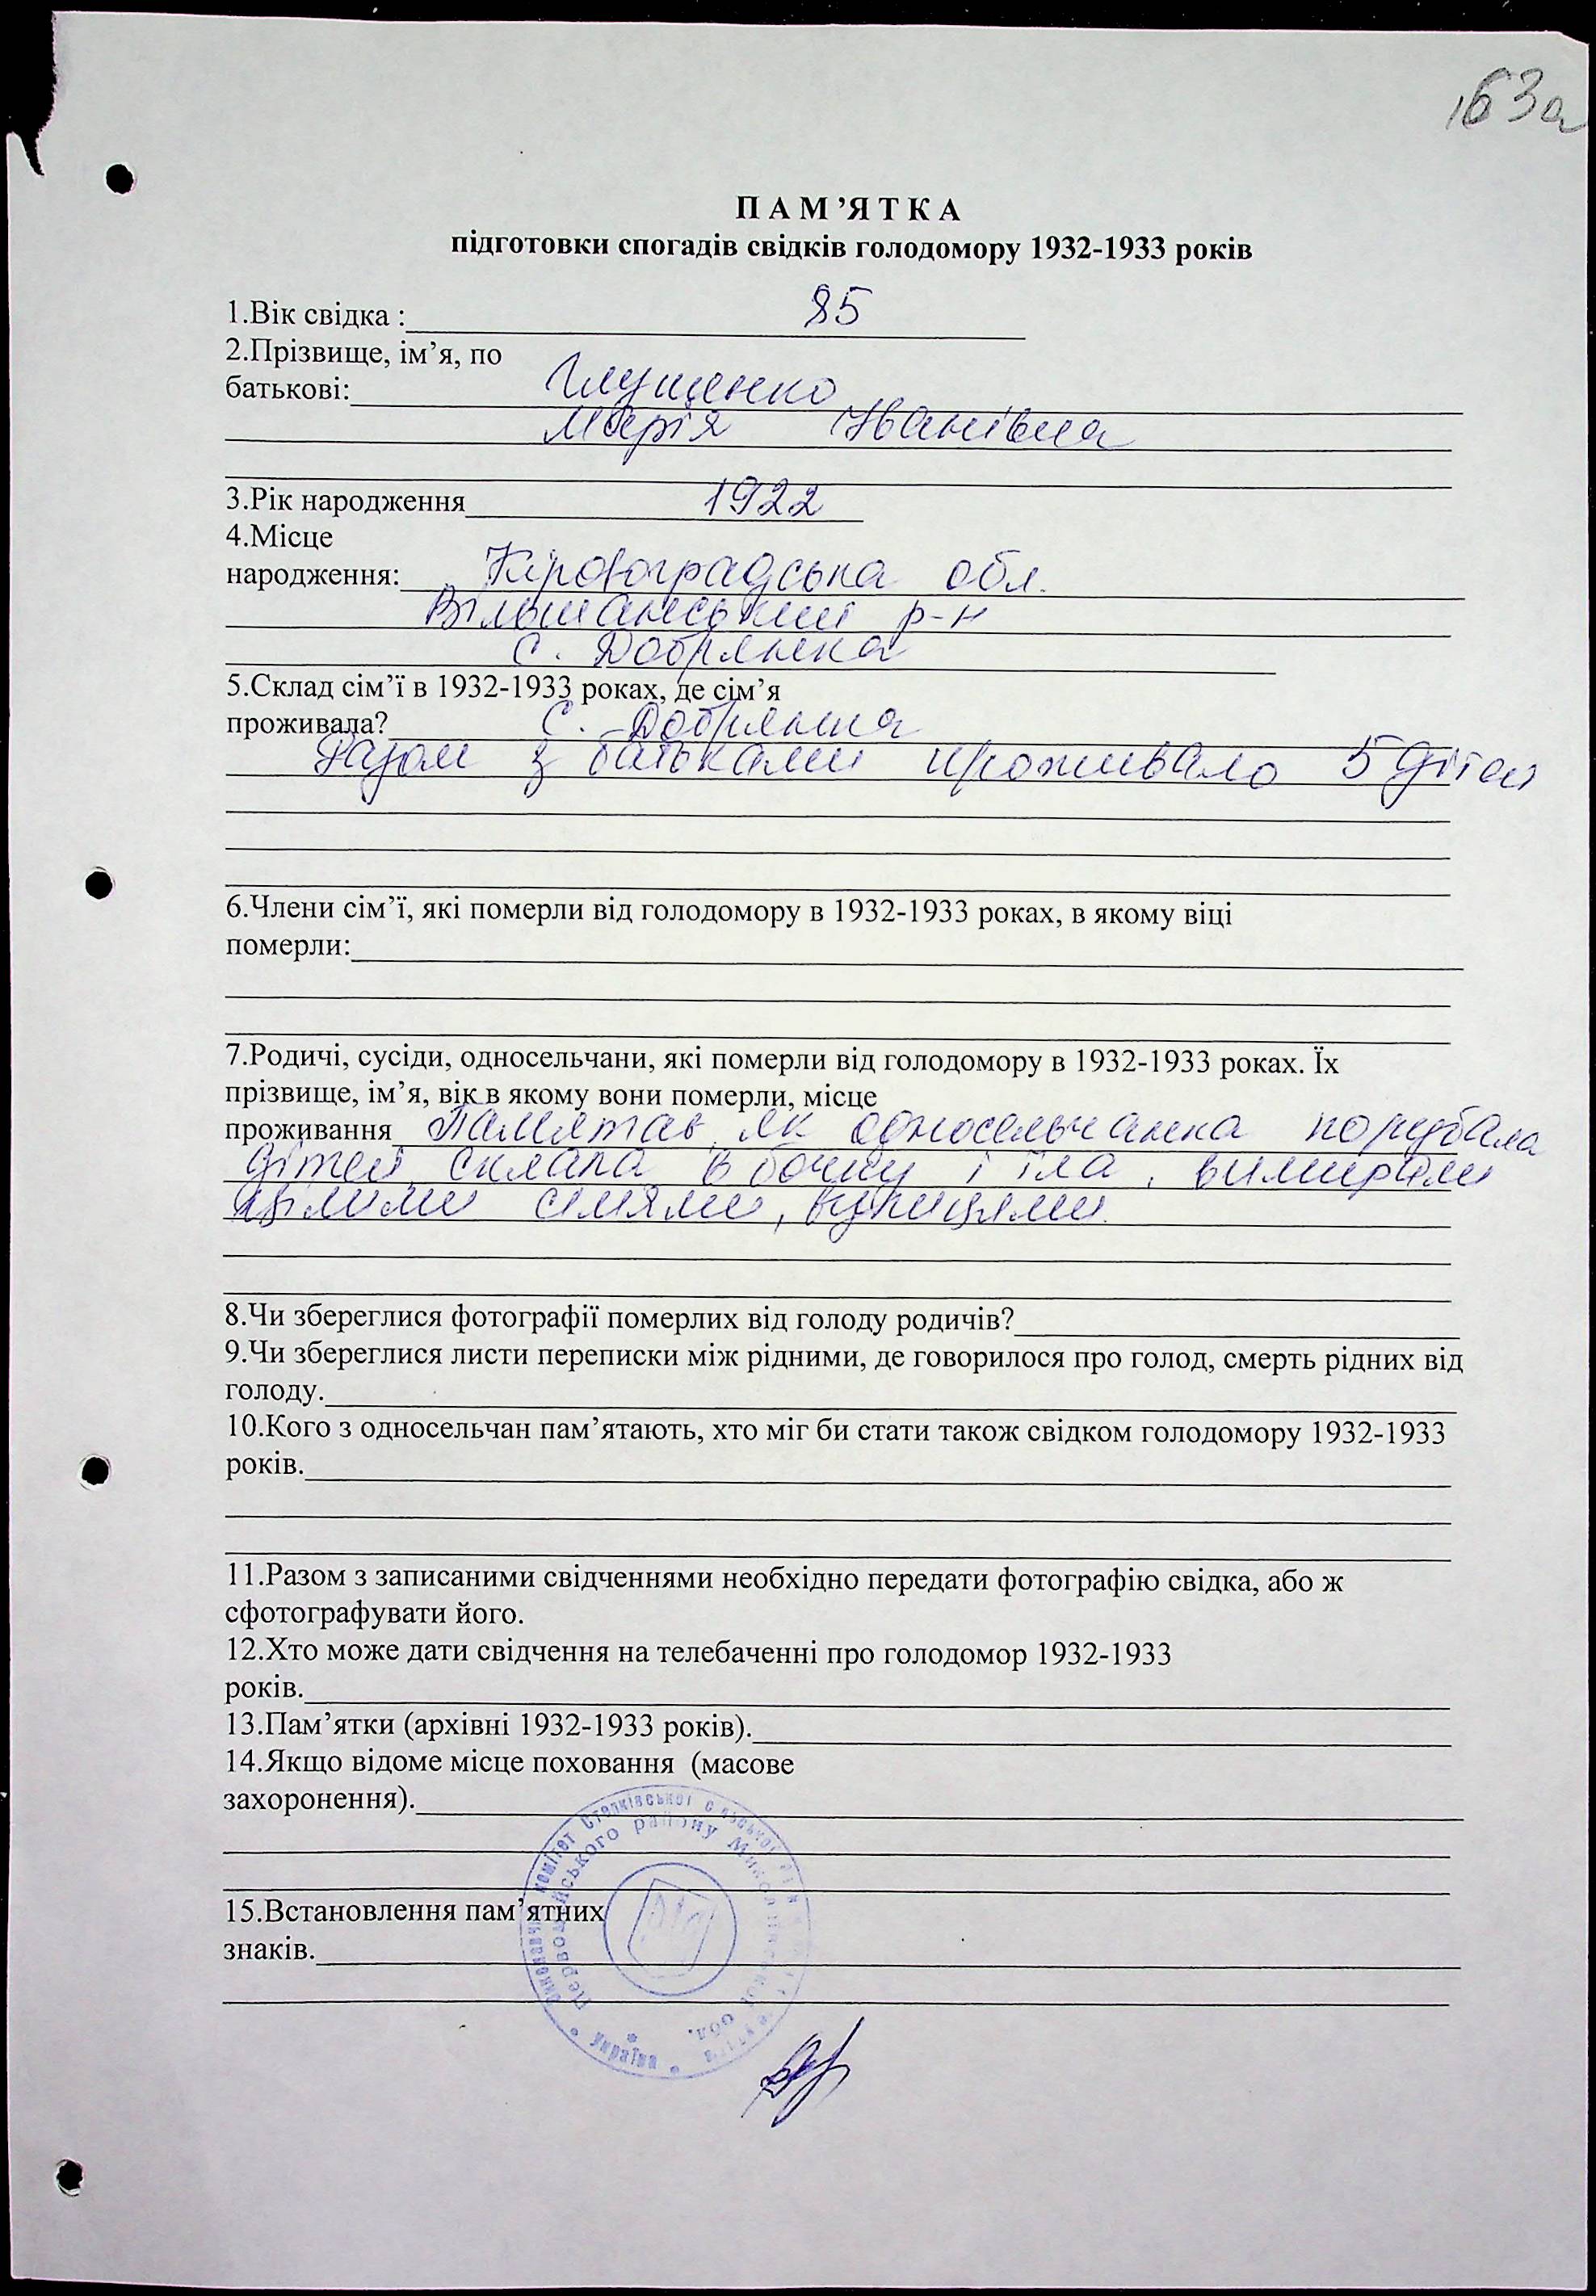 163а
П А М ’Я Т К А
підготовки спогадів свідків голодомору 1932-1933 років
1.Вік свідка : 85
2.Прізвище, ім’я, по
батькові: Глущенко
Марія Іванівна
3.Рік народження 1922
4.Місце
народження: Кіровоградська обл.
Вільшанський р-н
с. Добрянка
5.Склад сім’ї в 1932-1933 роках, де сім’я
проживала? С. Добрянка
Разом з батьками проживало 5 дітей
6.Члени сім’ї, які померли від голодомору в 1932-1933 роках, в якому віці
померли:
7.Родичі, сусіди, односельчани, які померли від голодомору в 1932-1933 роках. Їх
прізвище, ім’я, вік в якому вони померли, місце
проживання як односельчанка порубала
дітей, склала в бочку і їла, вимирали
цілими сімями, вулицями.
8.Чи збереглися фотографії померлих від голоду родичів?
9.Чи збереглися листи переписки між рідними, де говорилося про голод, смерть рідних від
голоду.
10.Кого з односельчан пам’ятають, хто міг би стати також свідком голодомору 1932-1933
років.
11.Разом з записаними свідченнями необхідно передати фотографію свідка, або ж
сфотографувати його.
12.Хто може дати свідчення на телебаченні про голодомор 1932-1933
років.
13.Пам’ятки (архівні 1932-1933 років).
14.Якщо відоме місце поховання (масове
захоронення).
15.Встановлення пам’ятних
знаків.
комітет Степківської
Первомайського району Миколаївської обл.
Україна